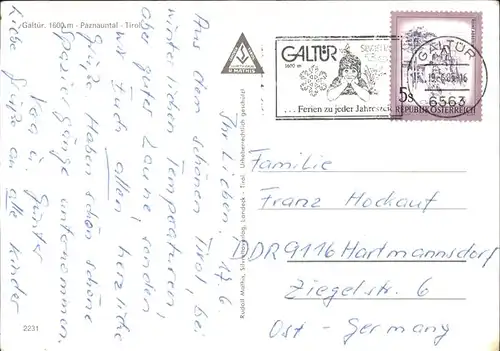 Galtür. 1600 m - Paznauntal - Tirol
2231
Rudolf Mathis, Silvretta-Verlag, Landeck - Tirol. Urheberrechtlich geschützt
MATHIS
17.6.
Ihr Lieben,
Aus dem schönen Tirol, bei
winterlichen Temperaturen,
aber guter Laune, senden
wir Euch allen, herzliche
Grüße. Haben schon schöne
Spaziergänge unternommen.
Günter
Liebe Grüße an alle Kinder
GALTÜR
1600 m
... Ferien zu jeder Jahreszeit
GALTÜR
6563
5s
REPUBLIK ÖSTERREICH
Familie
Franz Hockauf
DDR 9116 Hartmannsdorf
Ziegelstr. 6
Ost - Germany